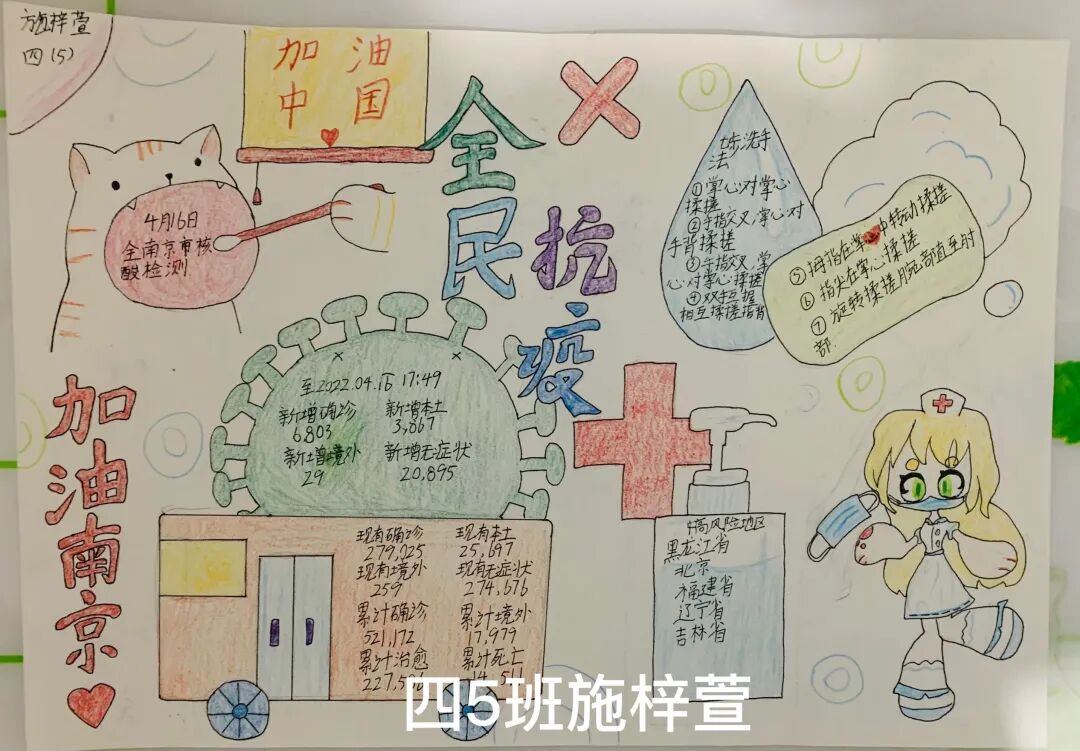 施梓萱
四(5)
加油
中国
全民
抗疫
4月16日
全南京市核
酸检测
七步洗手
法
①掌心对掌心
揉搓
②手指交叉,掌心对
手背揉搓
③手指交叉,掌
心对掌心揉搓
④双手互握
相互揉搓指背
⑤拇指在掌中转动揉搓
⑥指尖在掌心揉搓
⑦旋转揉搓腕部直至肘
部
至2022.04.16 17:49
新增确诊 新增本土
6,803 3,867
新增境外 新增无症状
29 20,895
加油南京
现有确诊 现有本土
279,025 25,697
现有境外 现有无症状
259 274,676
累计确诊 累计境外
521,172 17,979
累计治愈 累计死亡
高风险地区
黑龙江省
北京
福建省
辽宁省
吉林省
四5班施梓萱